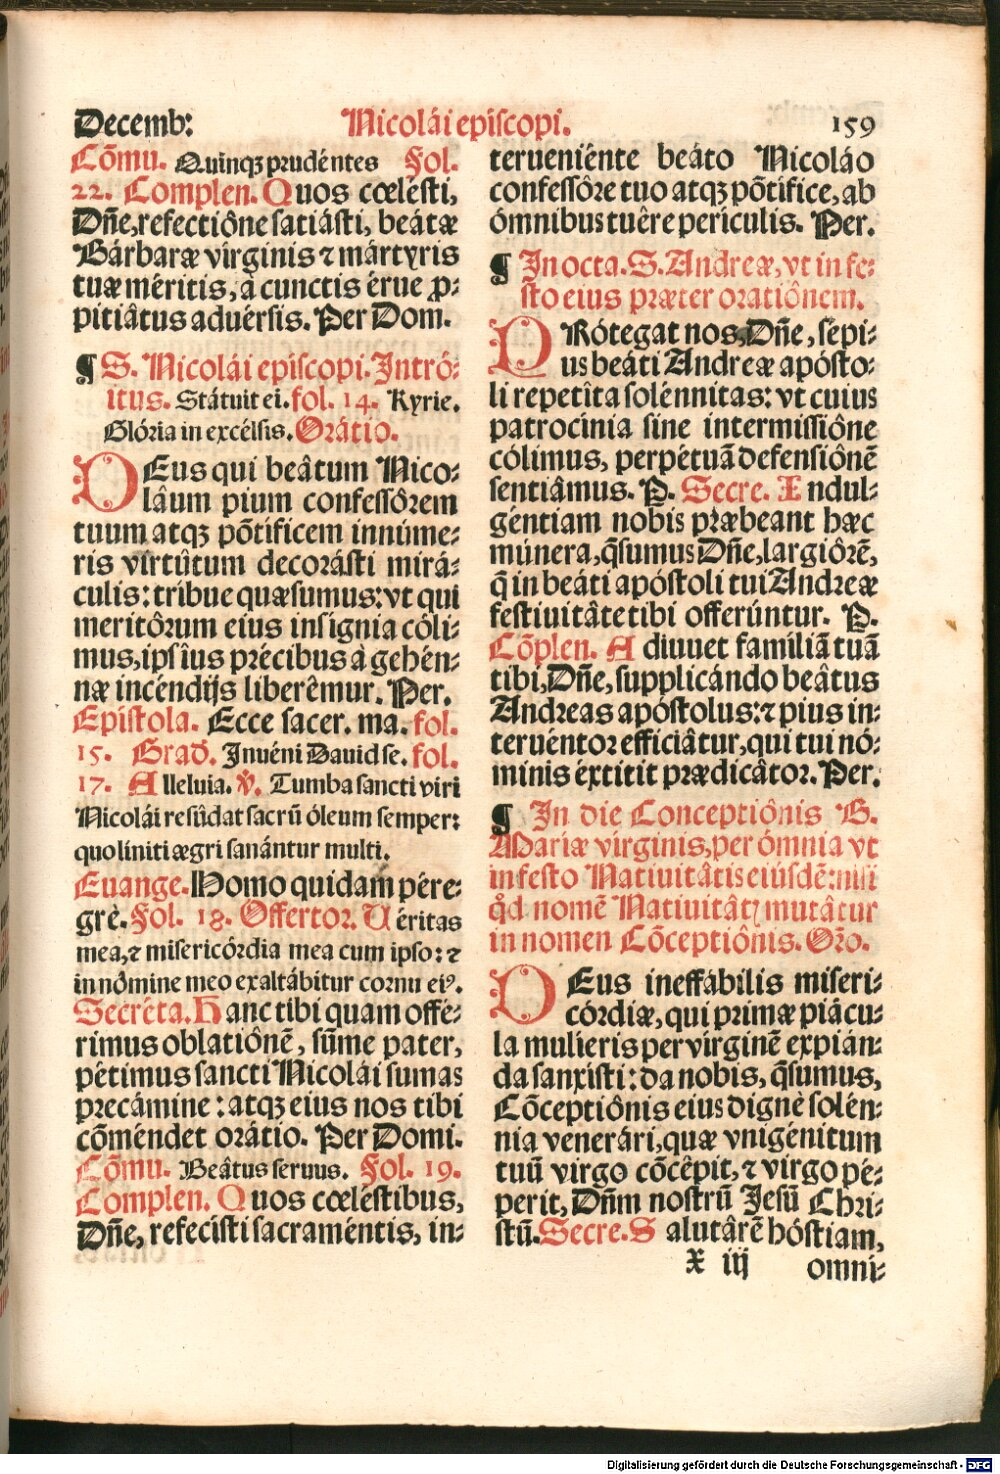 Decemb: Nicolái episcopi. 159
Cõmu. Quinqꝫ prudéntes Fol.
22. Complen. Quos cœlésti,
Dñe, refectiône satiásti, beátæ
Bárbaræ vírginis ⁊ mártyris
tuæ méritis, à cunctis érue ꝓ-
pitiâtus aduérsis. Per Dom.
¶ S. Nicolái episcopi. Intró-
itus. Státuit ei. fol. 14. Kyrie.
Glória in excélsis. Orátio.
DEus qui beâtum Nico-
lâum pium confessôrem
tuum atqꝫ põtíficem innúme-
ris virtûtum decorásti mirá-
culis: tríbue quæsumus: vt qui
meritôrum eius insígnia cóli-
mus, ipsîus précibus à gehén-
næ incéndijs liberêmur. Per.
Epistola. Ecce sacer. ma. fol.
15. Grad. Inuéni Dauid se. fol.
17. Alleluia. ℣. Tumba sancti viri
Nicolái resûdat sacrũ óleum semper:
quo líniti ægri sanántur multi.
Euange. Homo quidam pére-
grè. Fol. 18. Offertor. Uéritas
mea, ⁊ misericórdia mea cum ipso: ⁊
in nômine meo exaltábitur cornu eiꝰ.
Secréta. Hanc tibi quam offé-
rimus oblatiônẽ, sũme pater,
pétimus sancti Nicolái sumas
precámine: atqꝫ eius nos tibi
cõméndet orátio. Per Domi.
Cõmu. Beâtus seruus. Fol. 19.
Complen. Quos cœléstibus,
Dñe, refecísti sacraméntis, in-
terueniénte beáto Nicoláo
confessôre tuo atqꝫ põtífice, ab
ómnibus tuêre perículis. Per.
¶ In octa. S. Andreæ, vt in fe-
sto eius præter oratiônem.
PRótegat nos, Dñe, sépi-
us beáti Andreæ apósto-
li repetîta solénnitas: vt cuius
patrocínia sine intermissiône
cólimus, perpétuã defensiônẽ
sentiâmus. P. Secre. Indul-
géntiam nobis præbeant hæc
múnera, q̃sumus Dñe, largiôrẽ,
q̃ in beáti apóstoli tui Andreæ
festiuitâte tibi offerúntur. P.
Cõplen. Adiuuet famíliã tuã
tibi, Dñe, supplicándo beâtus
Andreas apóstolus: ⁊ pius in-
teruéntor efficiâtur, qui tui nó-
minis éxtitit prædicâtor. Per.
¶ In die Conceptiônis B.
Mariæ vírginis, per ómnia vt
in festo Natiuitâtis eiúsdẽ: nisi
qd nomẽ Natiuitâtꝭ mutâtur
in nomen Cõceptiônis. Orõ.
DEus ineffábilis miseri-
córdiæ, qui primæ piácu-
la mulíeris per vírginẽ expián-
da sanxísti: da nobis, q̃sumus,
Cõceptiônis eius dignè solén-
nia venerári, quæ vnigénitum
tuũ virgo cõcêpit, ⁊ virgo pé-
perit, Dñm nostrũ Jesũ Chri-
stũ. Secre. Salutârẽ hóstiam,
X iij omni-
Digitalisierung gefördert durch die Deutsche Forschungsgemeinschaft - DFG